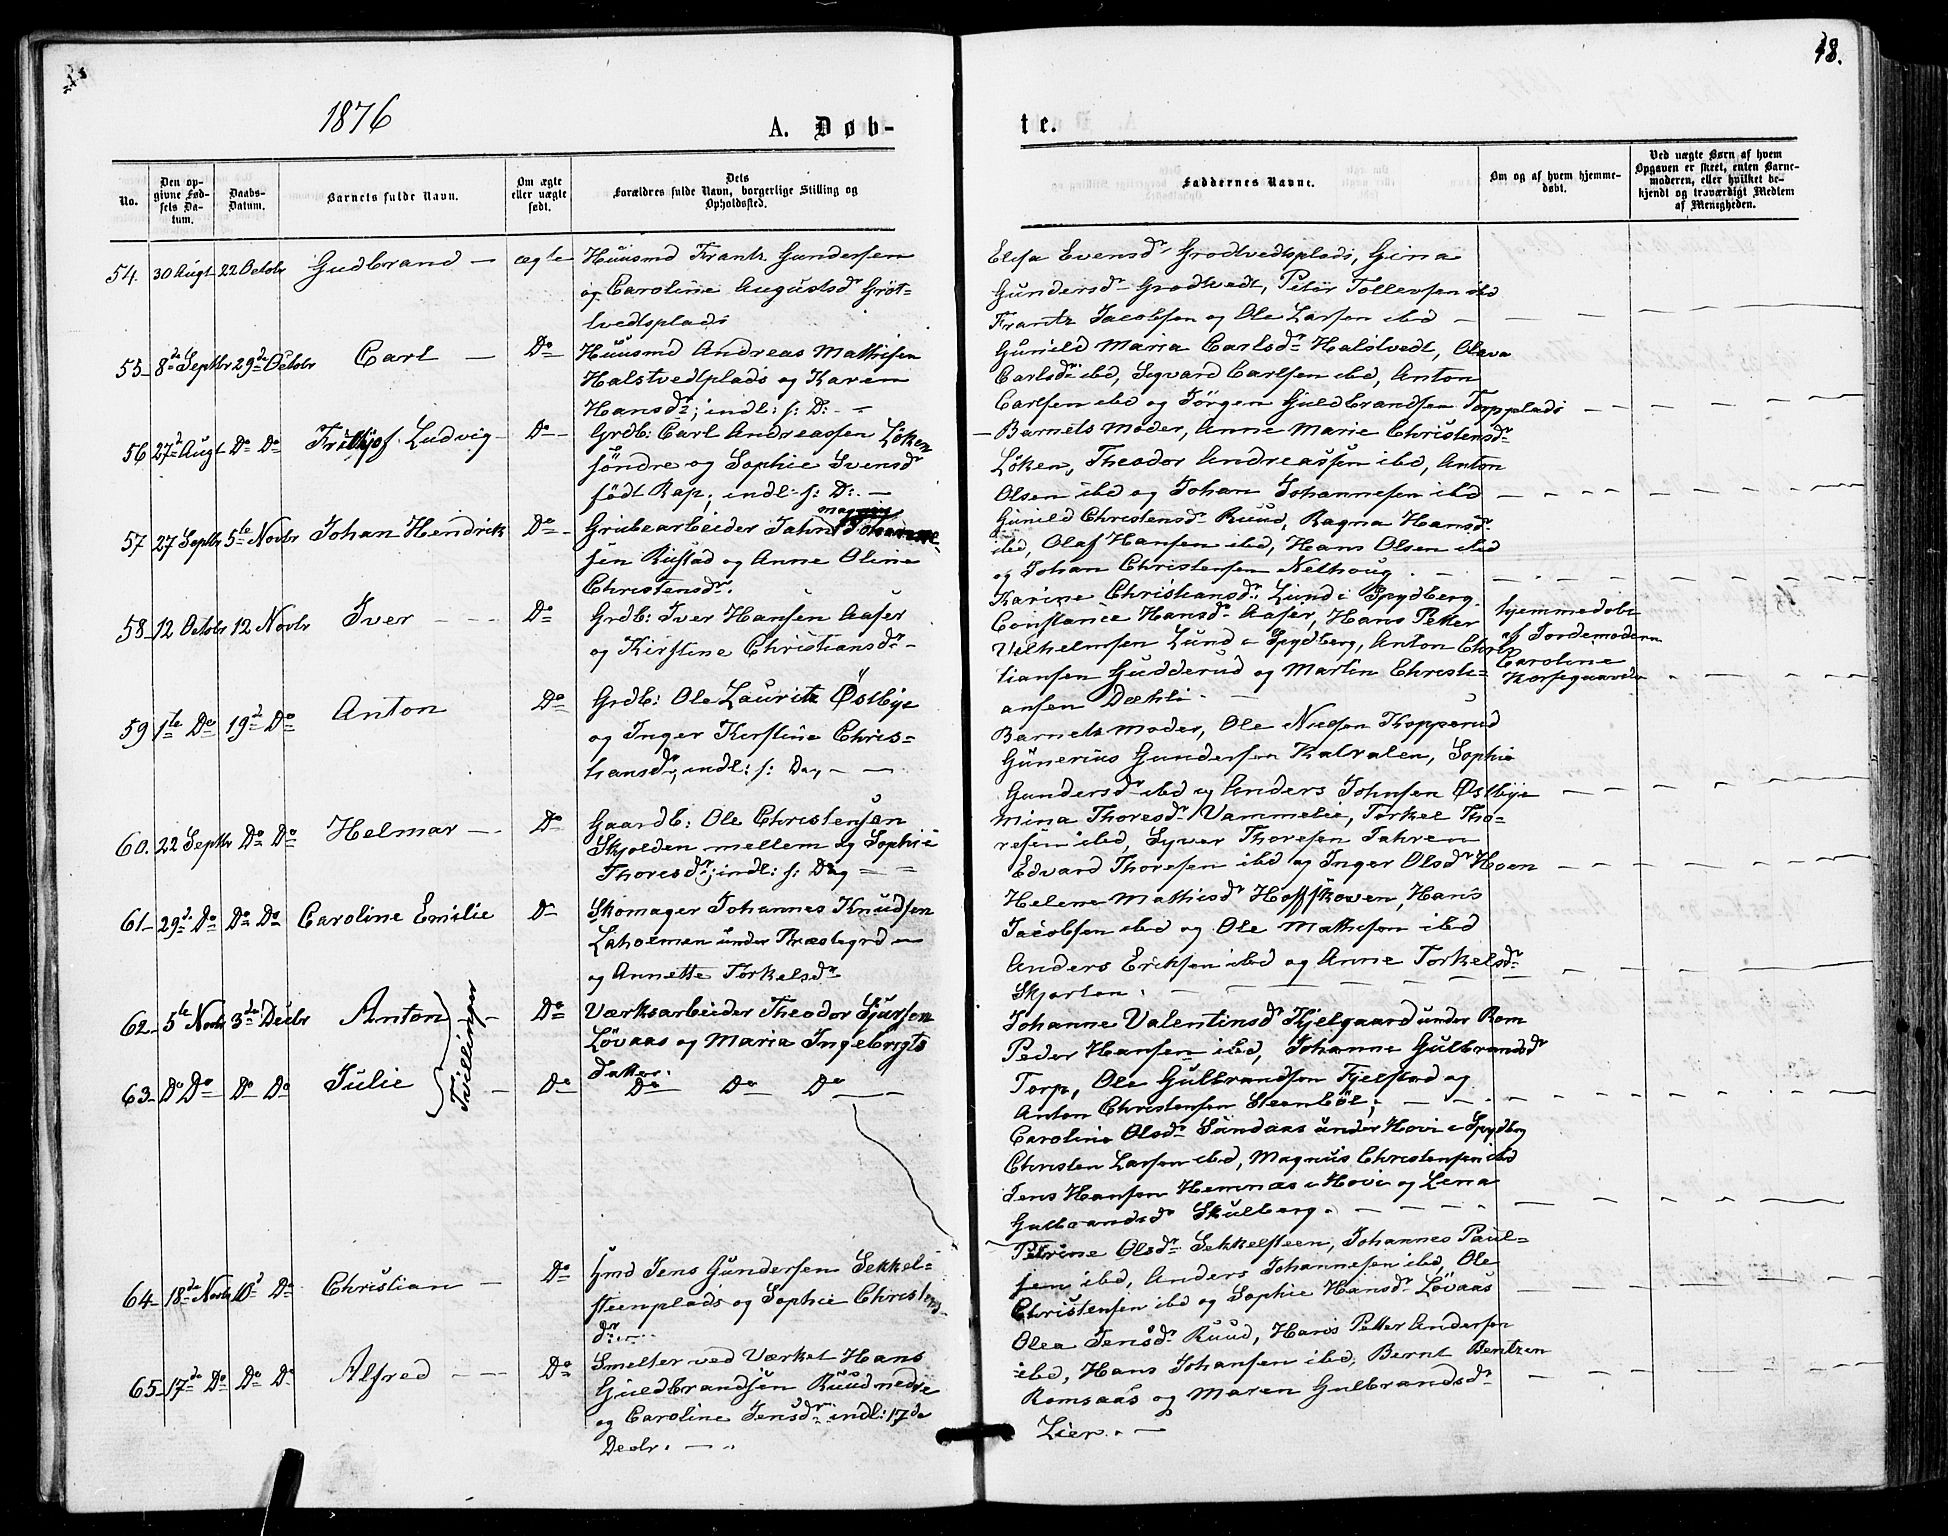 1876
18.
A. Døb-
te.
No.
Den op-
givne Fød-
sels Da-
tum.
Daabs-
Datum.
Barnets fulde Navn.
Om ægte
eller uægte
født.
Dets
Forældres fulde Navn, borgerlige Stilling og
Opholdssted.
Faddernes Navne.
Om og af hvem hjemme-
døbt.
Ved uægte Børn af hvem
Opgaven er skeet, enten Barne-
moderen, eller hvilket be-
kjendt og troværdigt Medlem
af Menigheden.
54. 30 Augt 22 Octobr Gudbrand — ægte Huusmd Frantz Gundersen
og Caroline Augustsdr Grøt-
tvedtsplads
Elisa Evensdr Grodtvedtsplads, Gina
Gundersdr Grodtvedt, Peter Tollevsen ibd
Frantz Jacobsen og Ole Larsen ibd —
55 8de Septbr 29de Octobr Carl — Do Huusmd Andreas Mathisen
Halstvedtplads og Karen
Hansdr; indl: s: D: —
Gunild Maria Carlsdr Halstvedt, Oleva
Carlsdr ibd, Sigvard Carlsen ibd, Anton
Carlsen ibd og Jørgen Guldbrandsen Torpplads
56 27de Augt Do Do Frithjof Ludvig — Do Grdb: Carl Andreassen Løken
søndre og Sophie Svensdr
født Rap; indl: s: D: —
— Barnets Moder, Anne Marie Christensdr
Løken, Theodor Andreassen ibd, Anton
Olsen ibd og Johan Johannesen ibd
57 27 Septbr 5te Novbr Johan Hendrick Do Grubearbeider Jahn Johanne-
Magnus
sen Rustad og Anne Oline
Christensdr.
Gunild Christensdr Ruud, Ragna Hansdr
ibd, Olaf Hansen ibd, Hans Olsen ibd
og Johan Christensen Nethoug.
58 12 Octobr 12 Novbr Iver — Do Grdb: Iver Hansen Aaser
og Kirstine Christiansdr
Karine Christiansdr Lund i Spydberg
Constance Hansdr Aaser, Hans Petter
Vilhelmsen Lund i Spydberg, Anton Chris
tiansen Gudderud og Martin Christi-
ansen Dæhli.
hjemmedøbt
af Jordemoderen
Caroline
59 1te Do 19de Do Anton Do Grdb: Ole Lauritz Østbye
og Inger Kirstine Chris-
tiansdr, indl: s: Dag —
Barnets Moder, Ole Nielsen Kopperud
Gunerius Gundersen Kalvalen, Sophie
Gundersdr ibd og Anders Johnsen Østbye
60. 22 Septbr Do Do Helmar — Do Gaardb: Ole Christensen
Skjolden mellem og Sophie
Thoresdr; indl: s: Dag —
Mina Thoresdr Vammelie, Torkel Tho-
resen ibd, Syver Thoresen Jahren
Edvard Thoresen ibd og Inger Olsdr Hoen
61 29de Do Do Do Caroline Emilie Do Skomager Johannes Knudsen
Laholmen under Præstegrd
og Annette Torkelsdr
Helene Mathisdr Hofskoven, Hans
Jacobsen ibd og Ole Mathisen ibd
Anders Eriksen ibd og Anne Torkelsdr
Skjorten.
62 5te Novbr 3de Decbr Anton Tvillinger Do Værksarbeider Theodor Sjursen
Løvaas og Maria Ingebrigts
datter.
Johanne Valentinsdr Kjelgaard under Rom
Peder Hansen ibd, Johanne Gulbrandsdr
Torp, Ole Gulbrandsen Fjelstad og
Anton Christensen Steenbøl.
63 Do Do Do Do Julie Do Do Do Do
Caroline Olsdr Sandaas under Hovi i Spydberg
Christen Larsen ibd, Magnus Christensen ibd
Jens Hansen Hemnæs i Hovi og Lena
Gulbrandsdr Skulberg.
64 18de Novbr 10de Do Christian — Do Gmd Jens Gundersen Sekkel-
steenplads og Sophie Christens
dr
Petrine Olsdr Sekkelsteen, Johannes Paul-
sen ibd, Anders Johannesen ibd, Ole
Christensen ibd og Sophie Hansdr Løvaas
65 17de Do Do Do Alfred — Do Smelter ved Værket Hans
Guldbrandsen Ruud nedre
og Caroline Jensdr indl: 17de
Decbr.
Olea Jensdr Ruud, Hans Petter Andersen
ibd, Hans Johansen ibd, Bernt Bentzen
Romsaas og Maren Gulbrandsdr
Lier.